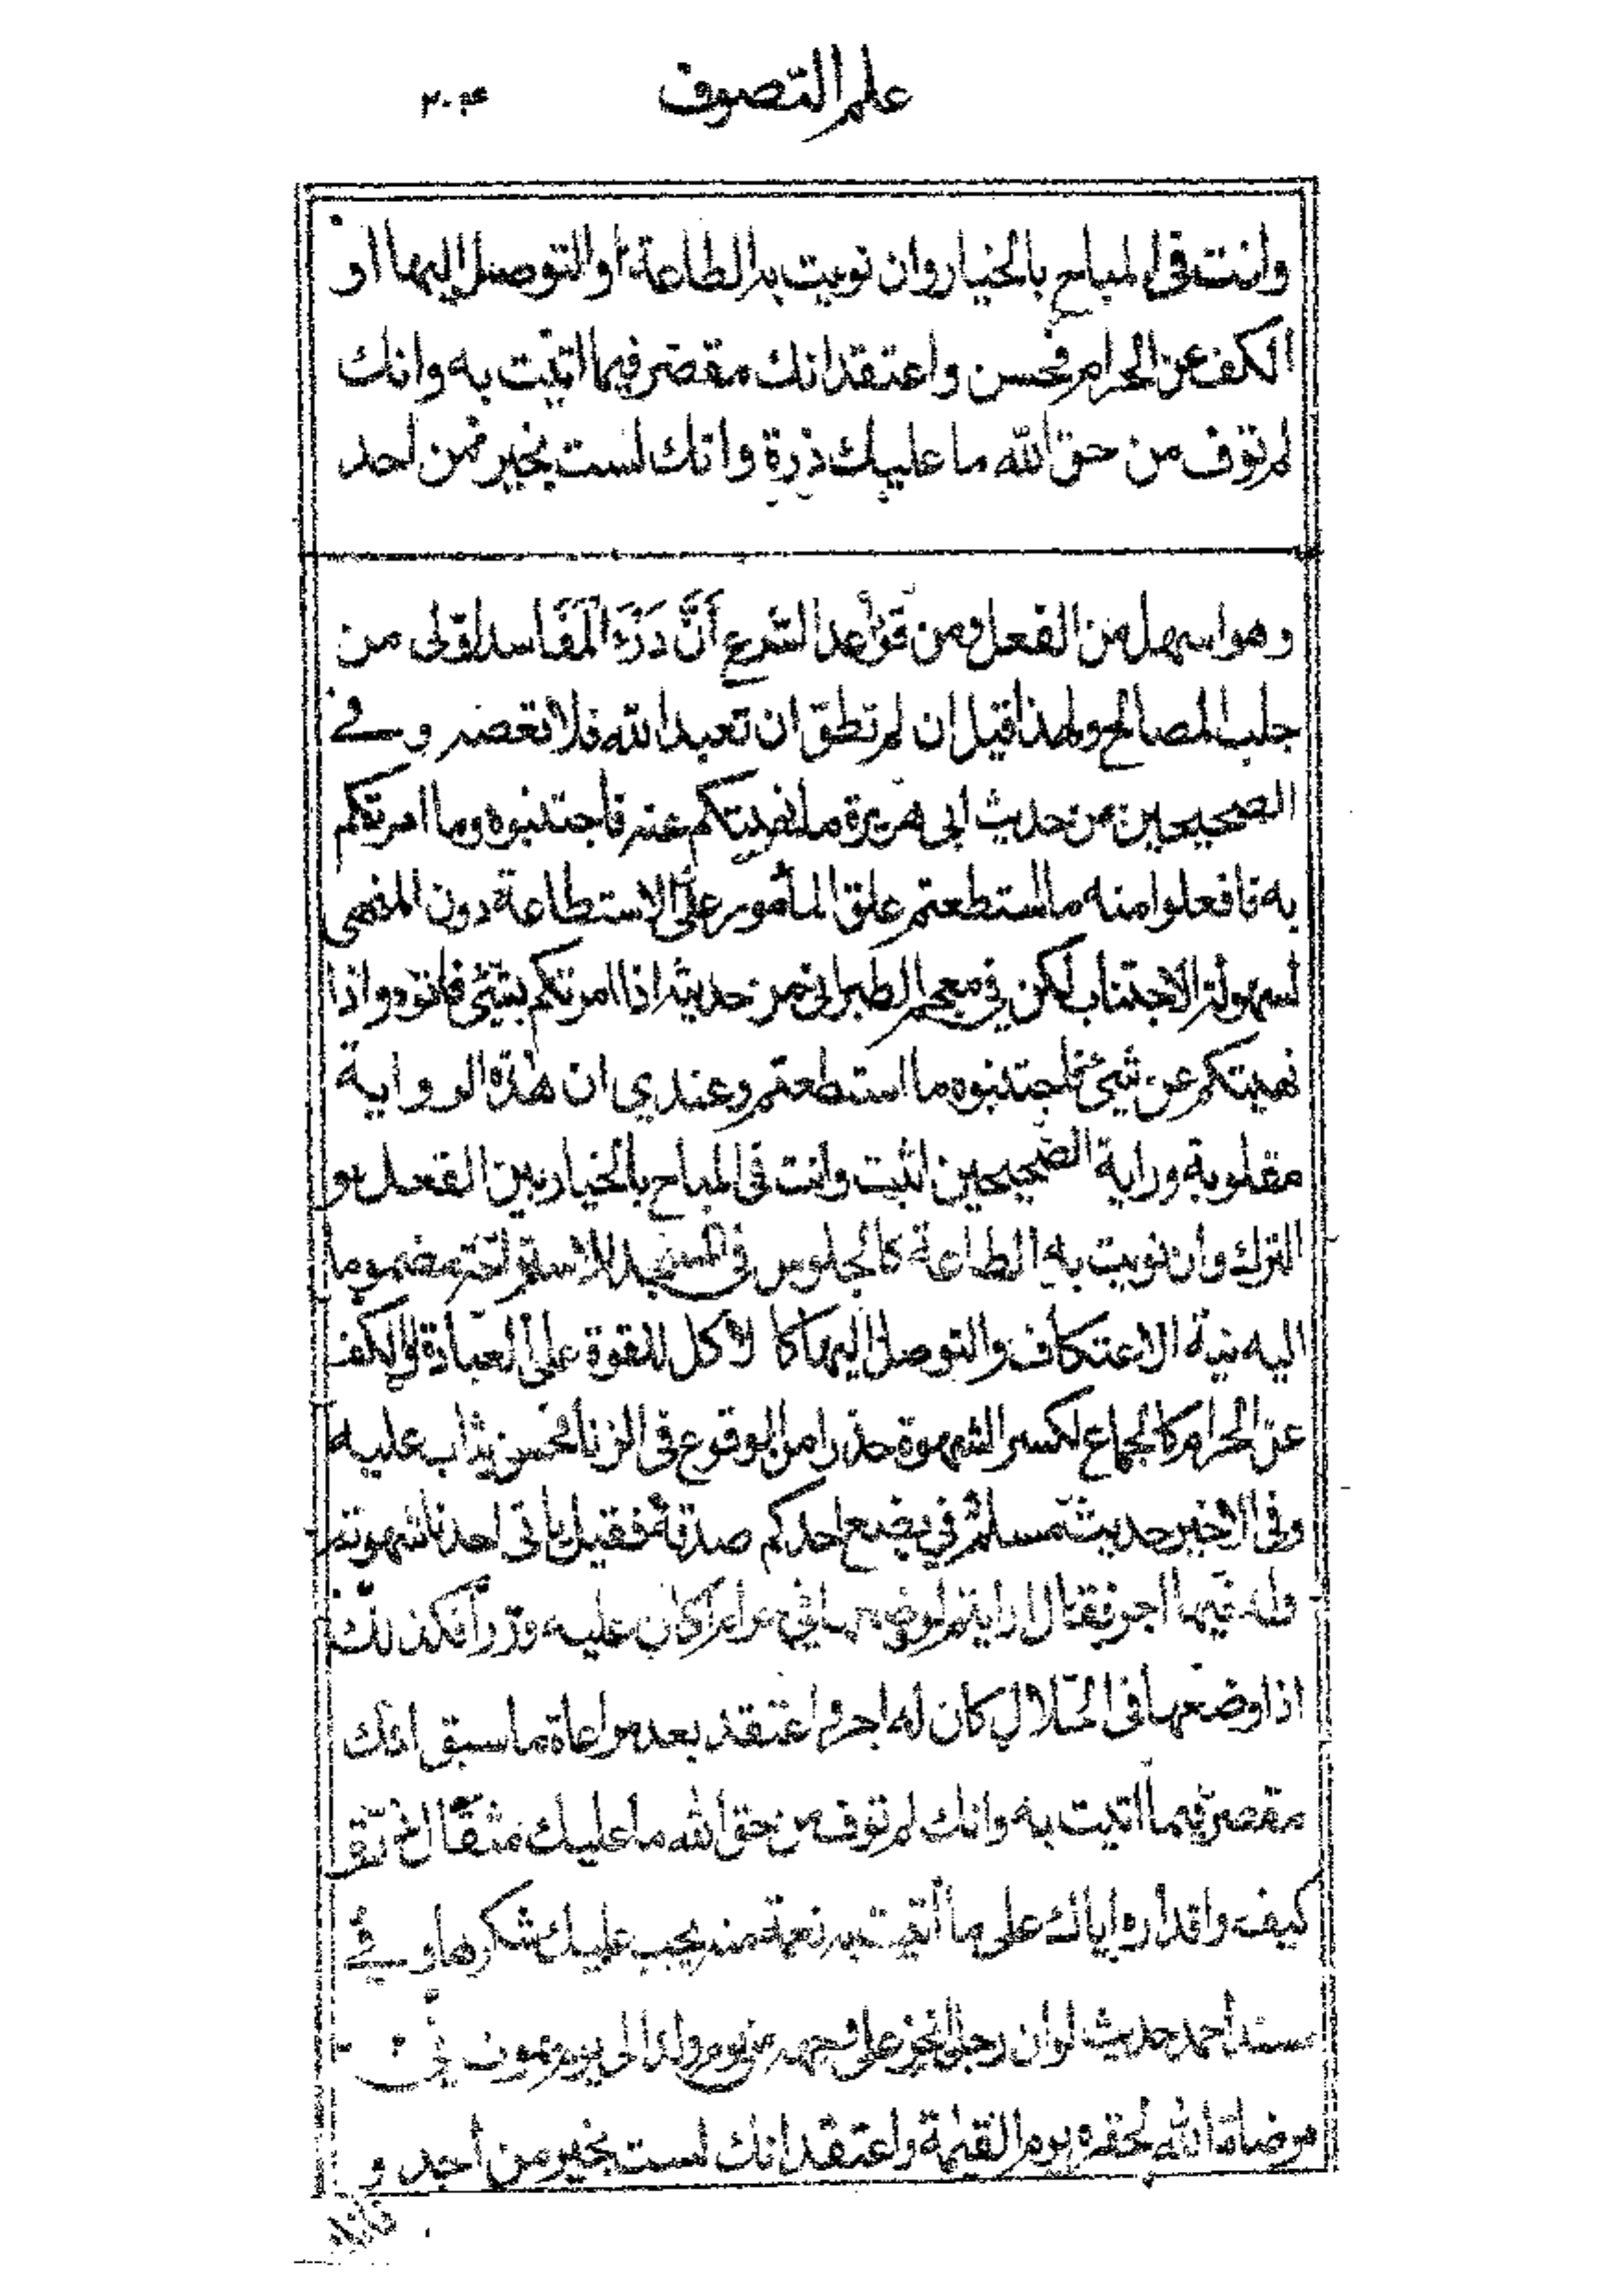 علم التصوف ٢٠٤
وانت فى المباح بالخيار وان نويت به الطاعة او التوصل اليها او
الكف عن الحرام فحسن واعتقد انك مقصر فيما اتيت به وانك
لم توف من حق الله ما عليك ذرة وانك لست بخير من احد
وهو اسهل من الفعل ومن قواعد الشرع أنَّ دَرْءَ المَفَاسد اولى من
جلب المصالح ولهذا قيل ان لم تطق ان تعبد الله فلا تعصه وفى
الصحيحين من حديث ابى هريرة ما نهيتكم عنه فاجتنبوه وما امرتكم
به فافعلوا منه ما استطعتم علق المأمور على الاستطاعة دون المنهى
لسهولة الاجتناب لكن في معجم الطبرانى من حديثه اذا امرتكم بشئ فاتوه واذا
نهيتكم عن شئ فاجتنبوه ما استطعتم وعندي ان هذه الرواية
مقلوبة وراية الصحيحين اثبت وانت فى المباح بالخيار بين الفعل و
الترك وان نويت به الطاعة كالجلوس فى المسجد للاستراحة مضموما
اليه نية الاعتكاف والتوصل اليها كا لاكل للقوة على العبادة او الكف
عن الحرام كالجماع لكسر الشهوة حذرا من الوقوع فى الزنا فحسن يثاب عليه
وفى الاخير حديث مسلم في بضع احدكم صدقة فقيل ياتى احدنا شهوته
وله فيها اجر فقال ارايتم لو وضعها في حرام اكان عليه وزر فكذلك
اذا وضعها فى الحلال كان له اجر واعتقد بعد مراعاة ما سبق انك
مقصر فيما اتيت به وانك لم توف من حق الله ما عليك مثقال ذرة
كيف واقداره اياك على ما أتيت به نعمة منه يجب عليك شكرها وفى
سند أحمد حديث لو ان رجلا يخر على وجهه من يوم ولد الى يوم يموت في
مرضاة الله لحقره يوم القيمة واعتقد انك لست بخير من أحد و